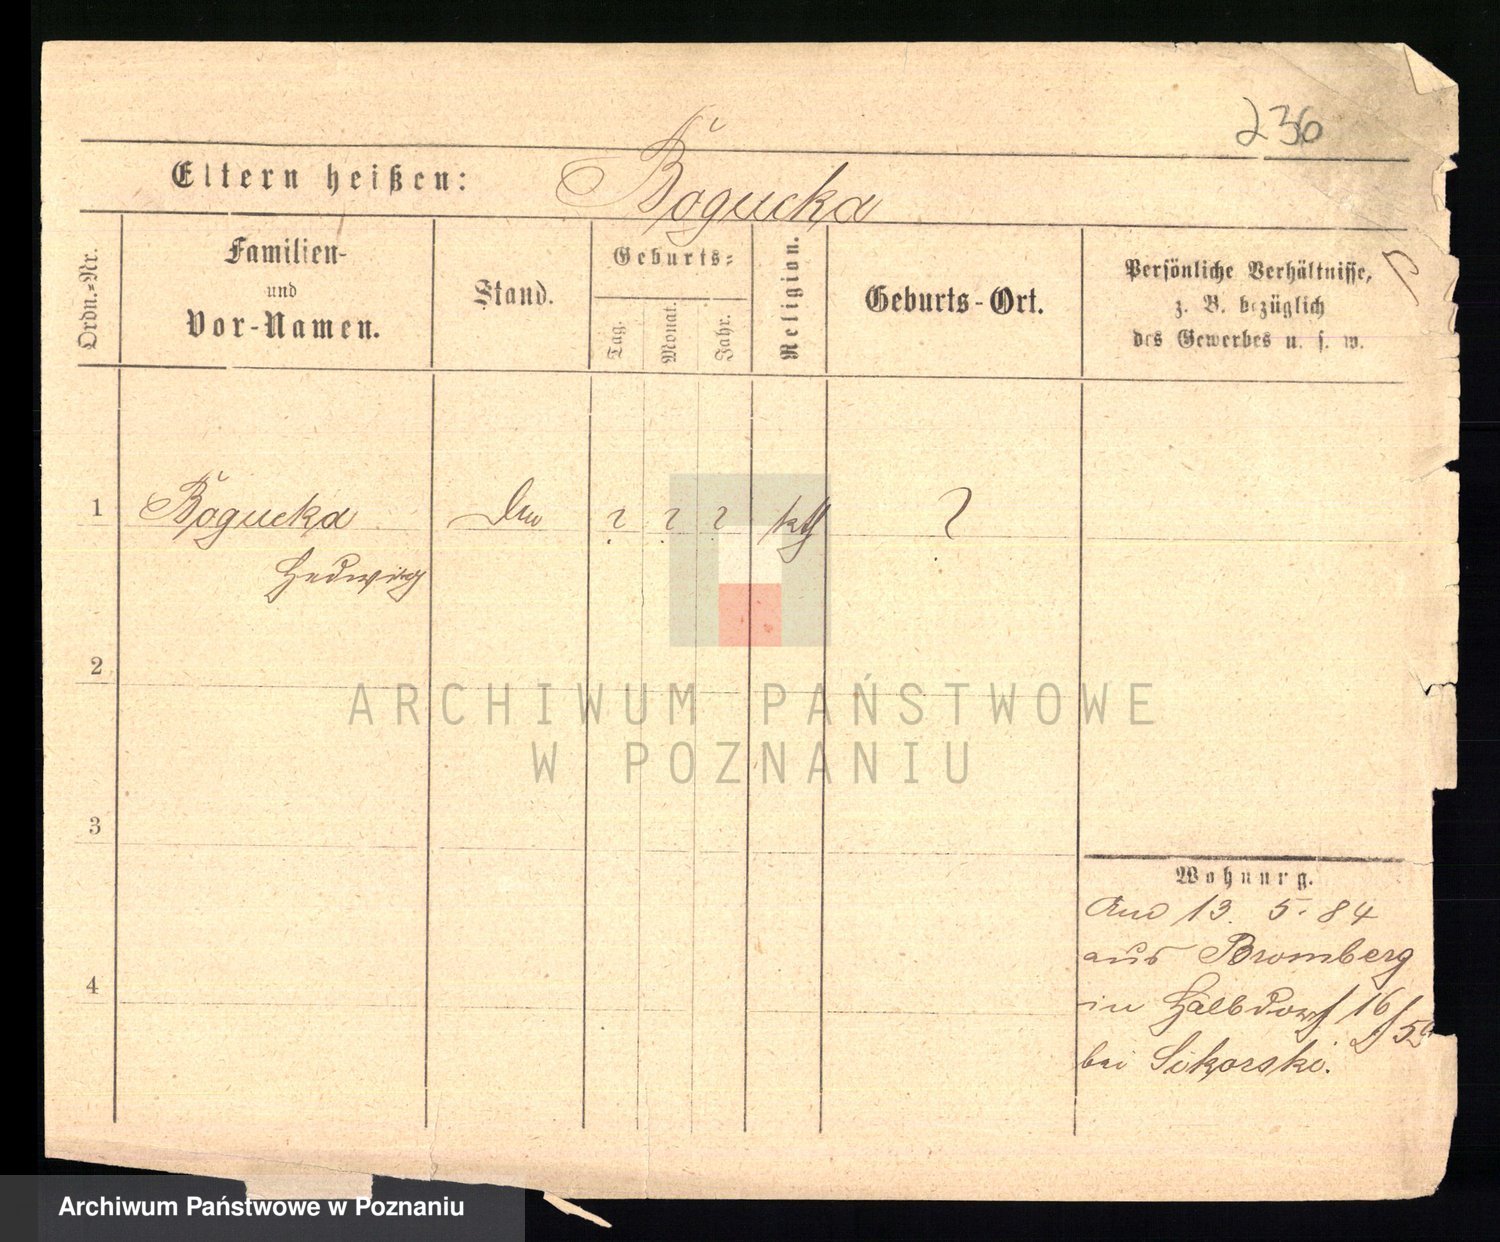 236
Eltern heißen: Bogucka
Ordn.=Nr.
Familien-
und
Vor-Namen.
Stand.
Geburts=
Tag.
Monat.
Jahr.
Religion.
Geburts-Ort.
Persönliche Verhältnisse,
z. B. bezüglich
des Gewerbes u. s. w.
1 Bogucka ? ? ? kth ?
Hedwig
2
3
4
Wohnung.
13. 5. 84
aus Bromberg
in Halbdorf 16
bei Sikorski.
ARCHIWUM PAŃSTWOWE
W POZNANIU
Archiwum Państwowe w Poznaniu